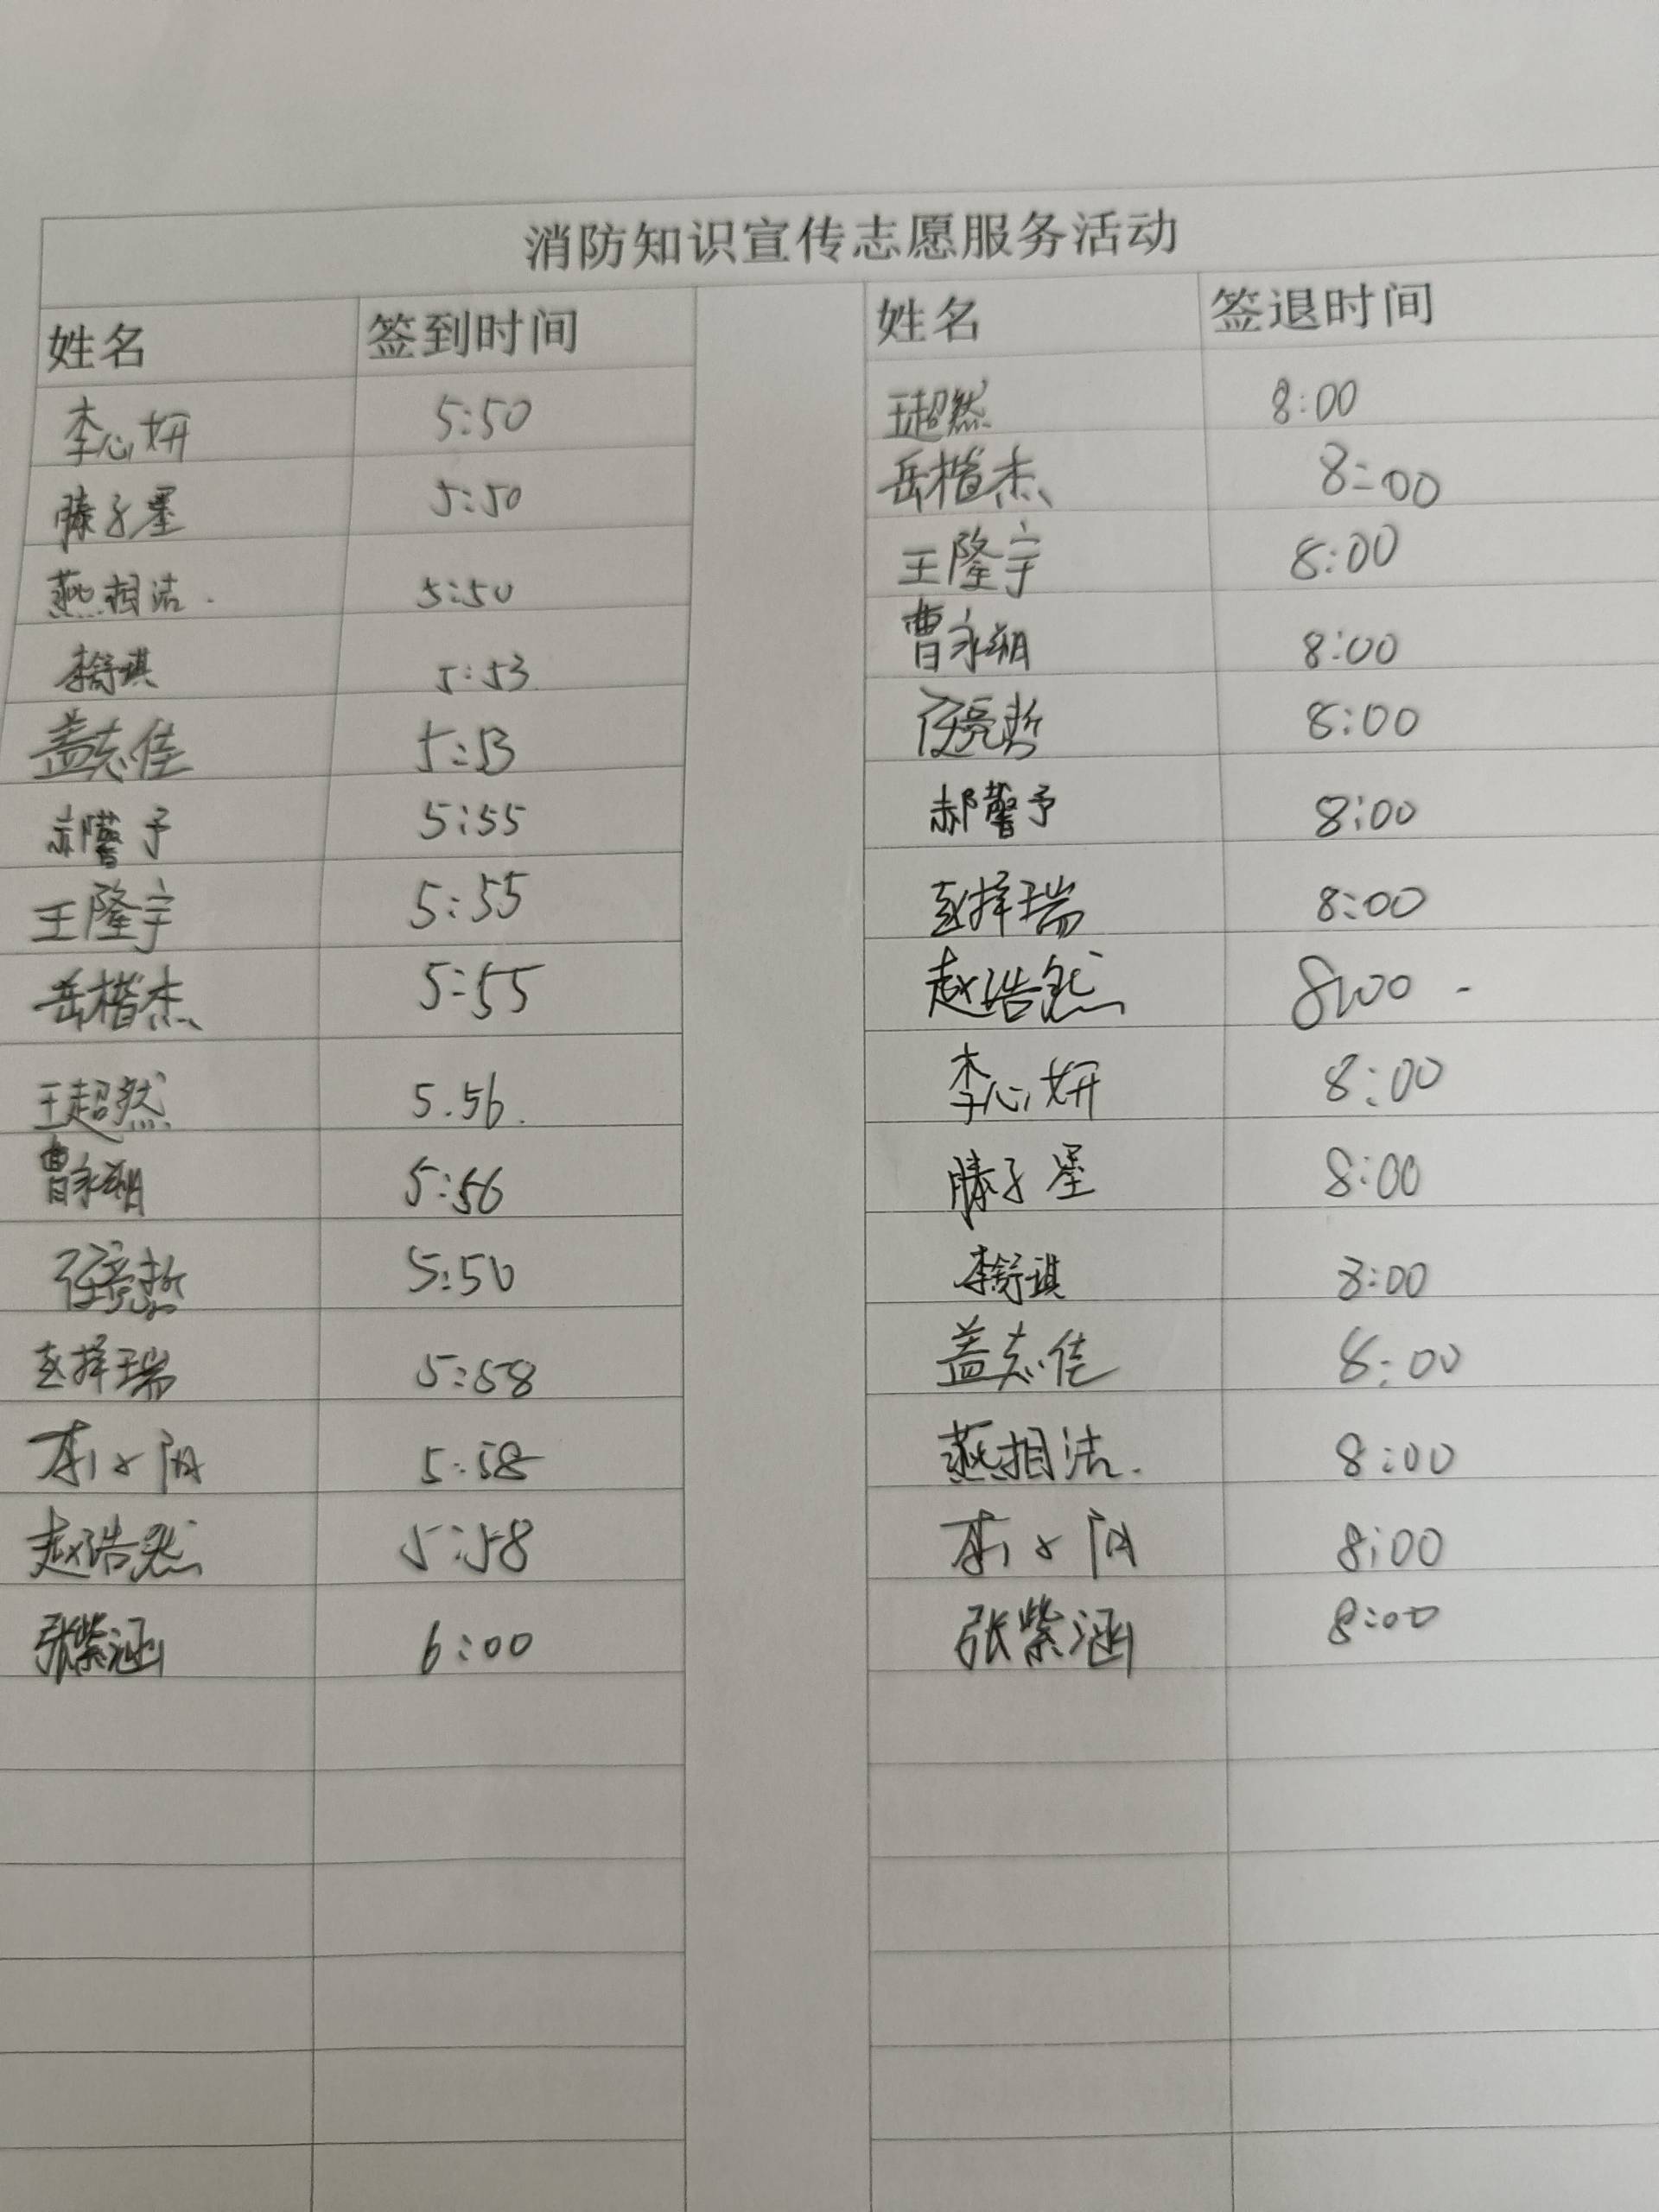 消防知识宣传志愿服务活动
姓名 签到时间 姓名 签退时间
李心妍 5:50 王超然 8:00
滕子墨 5:50 岳楷杰 8:00
燕相洁. 5:50 王隆宇 8:00
李舒琪 5:53 曹永朔 8:00
盖志佳 5:53 8:00
郝馨予 5:55 郝馨予 8:00
王隆宇 5:55 赵择瑞 8:00
岳楷杰 5:55 赵浩然 8:00
王超然 5.56. 李心妍 8:00
曹永朔 5:56 滕子墨 8:00
5:56 李舒琪 8:00
赵择瑞 5:58 盖志佳 8:00
5:58 燕相洁. 8:00
赵浩然 5:58 8:00
张紫涵 6:00 张紫涵 8:00